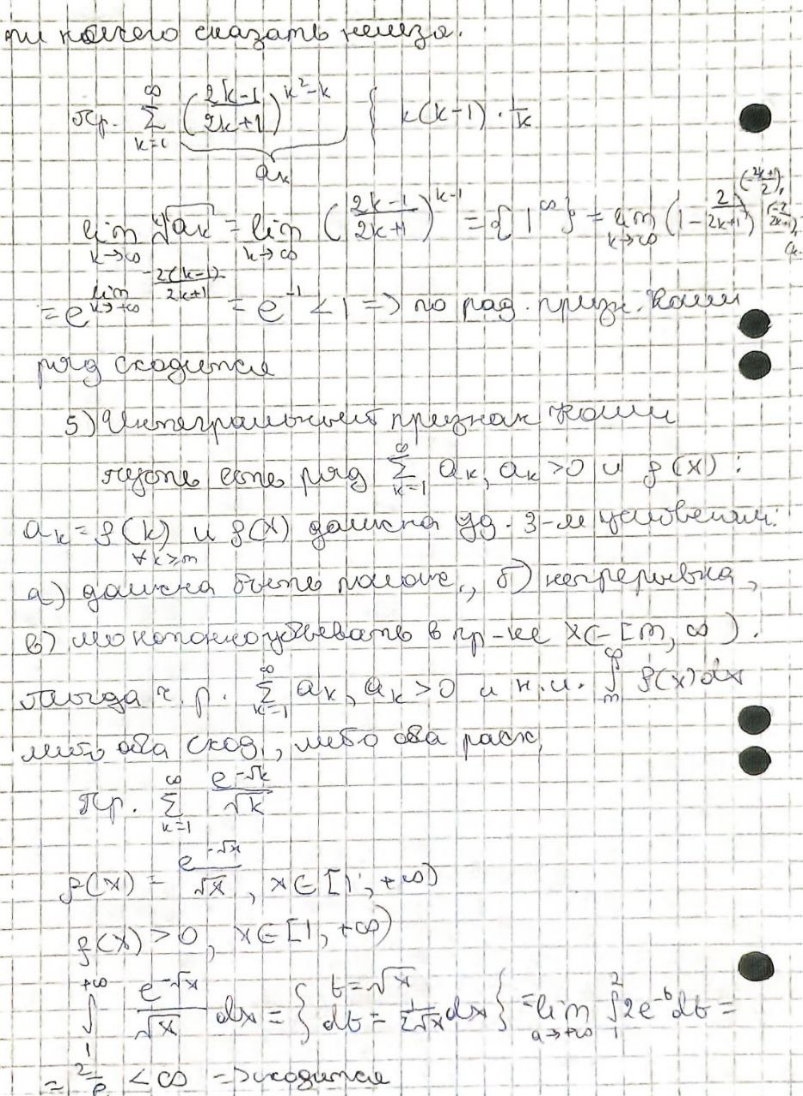 ти ничего сказать нельзя.
Пр. ∑_{k=1}^{∞} ((2k-1)/(2k+1))^{k²-k} { k(k-1) · 1/k
a_k
lim_{k→∞} ᵏ√a_k = lim_{k→∞} ((2k-1)/(2k+1))^{k-1} = {1^∞} = lim_{k→∞} (1 - 2/(2k+1))^{(-(2k+1)/2)·(-2/(2k+1))·(k-
= e^{lim_{k→+∞} -2(k-1)/(2k+1)} = e^{-1} < 1 => по рад. призн. Коши
ряд сходится
5) Интегральный признак Коши
пусть есть ряд ∑_{k=1}^{∞} a_k, a_k > 0 и f(x) :
a_k = f(k) ∀k≥m и f(x) должна уд. 3-м условиям:
а) должна быть полож., б) непрерывна,
в) монотонно убывать в пр-ке x∈[m, ∞).
тогда ч.р. ∑_{k=1}^{∞} a_k, a_k > 0 и н.и. ∫_m^∞ f(x)dx
либо оба сход., либо оба расх.
Пр. ∑_{k=1}^{∞} e^{-√k}/√k
f(x) = e^{-√x}/√x, x∈[1, +∞)
f(x) > 0, x∈[1, +∞)
∫_1^{+∞} e^{-√x}/√x dx = { t=√x dt = 1/(2√x) dx } = lim_{a→+∞} ∫_1^2 2e^{-t}dt =
= 2/e < ∞ => сходится